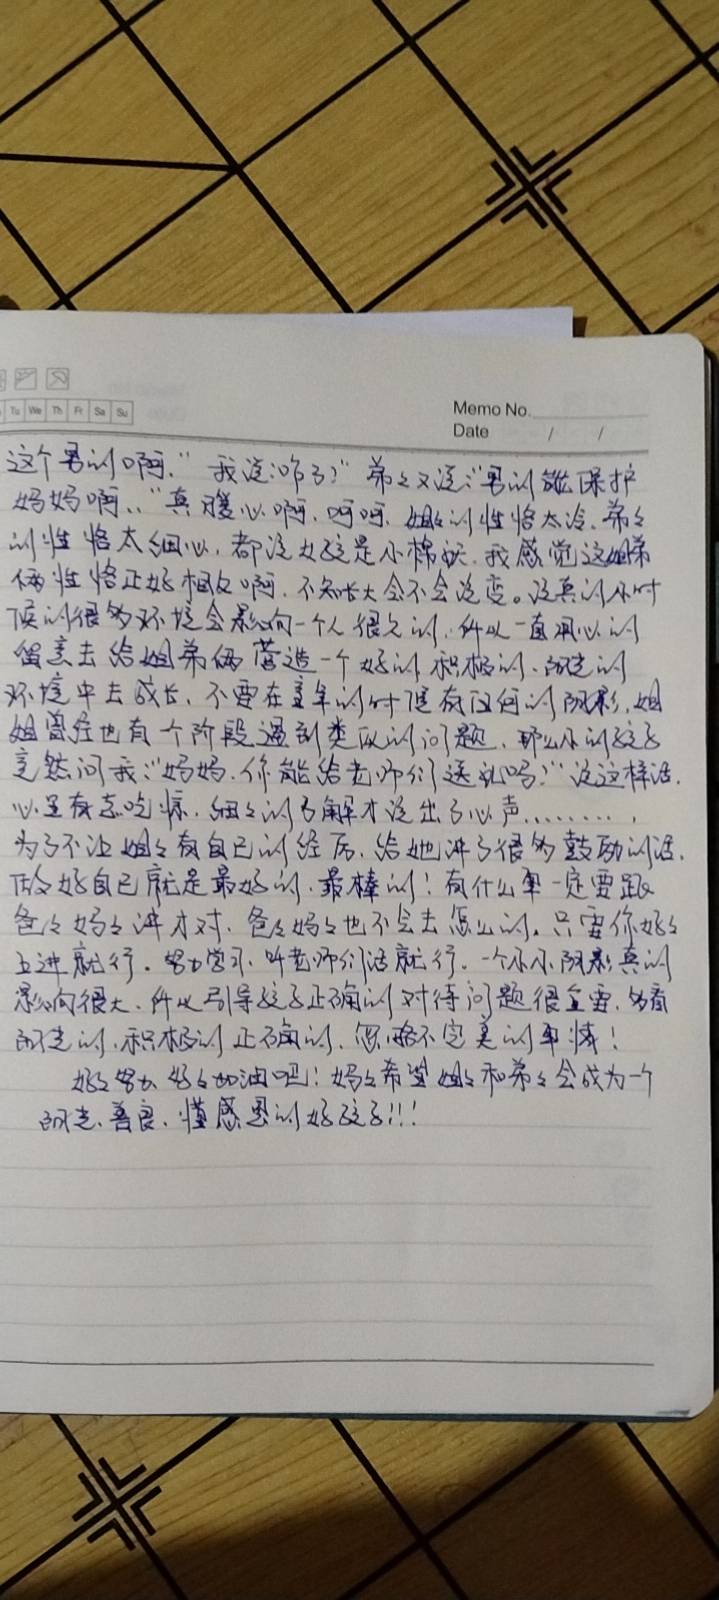 Tu We Th Fr Sa Su
Memo No.
Date / /
这个男的啊,"我说:咋了?"弟弟又说:"男的能保护
妈妈啊.."真暖心啊.呵呵.姐姐的性恪太冷.弟弟
的性恪太细心,都说女孩是小棉袄.我感觉这姐弟
俩性恪正好相反啊.不知长大会不会改变。说真的小时
候的很多环境会影响一个人很久的.所以一直用心的
留意去给姐弟俩营造一个好的.积极的.阳光的
环境中去成长.不要在童年的时候有任何的阴影.姐
姐曾经也有一个阶段遇到类似的问题.那么小的孩子
竟然问我:"妈妈.你能给老师们送礼吗?"说这样话.
心里有点吃惊.细细的了解才说出了心声........,
为了不让姐姐有自己的经历.给她讲了很多鼓励的话.
做好自己就是最好的.最棒的!有什么事一定要跟
爸爸妈妈讲才对.爸爸妈妈也不会去怎么的.只要你好好
上进就行.努力学习.听老师们话就行.一个小小阴影真的
影响很大.所以引导孩子正确的对待问题很重要.多看
阳光的.积极的正确的.忽略不完美的事情!
好好努力.好好加油吧!妈妈希望姐姐和弟弟会成为一个
阳光.善良.懂感恩的好孩子!!!